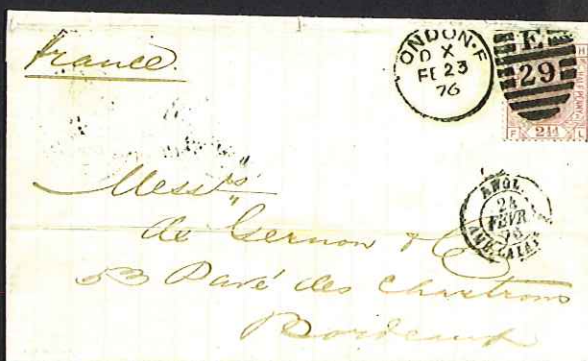 France.
LONDON·E
DX
FE 23
76
E
29
F 2½d L
Messrs
de Gernon & Co
53 Pavé des Chartrons
Bordeaux
ANGL.
24
FEVR
76
AMB. CALAIS